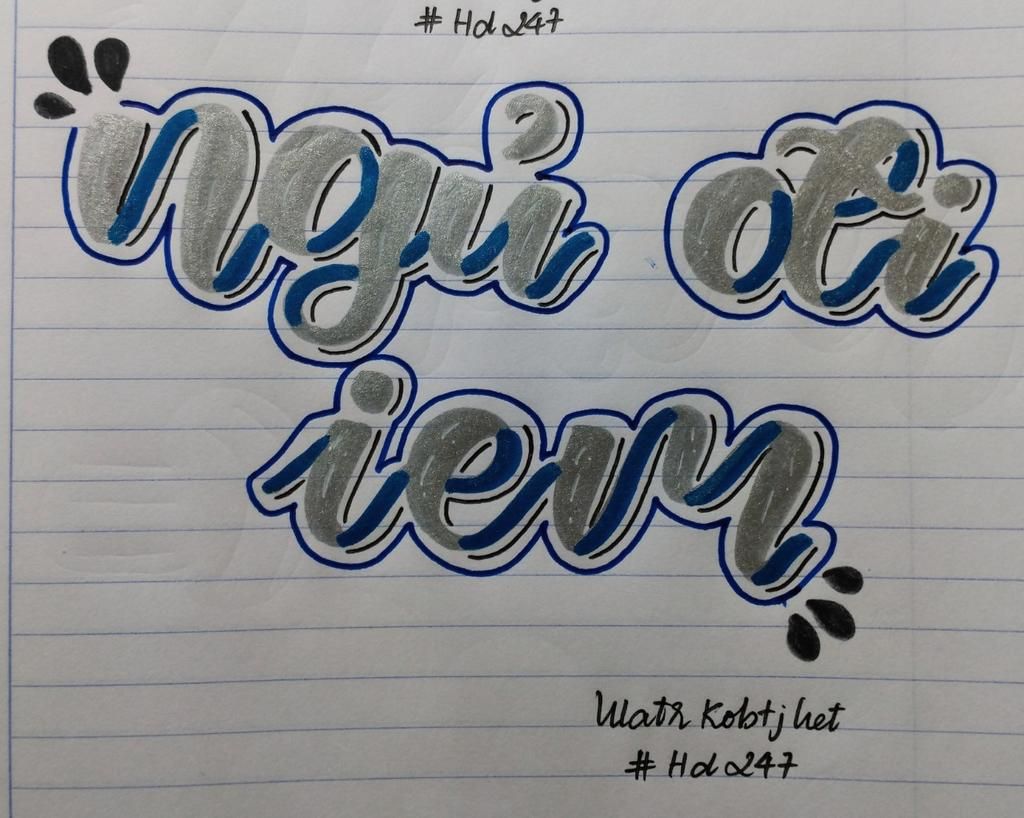 # Hd247
ngủ đi
iem
Kobtjhet
# Hd247